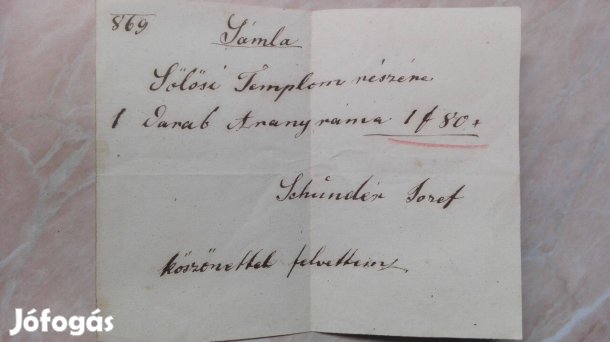 869
Sámla
Sőlősi Templom részére
1 Darab Arany ráma 1 f 80 +
Schünder Josef
köszönettel felvettem
Jófogás